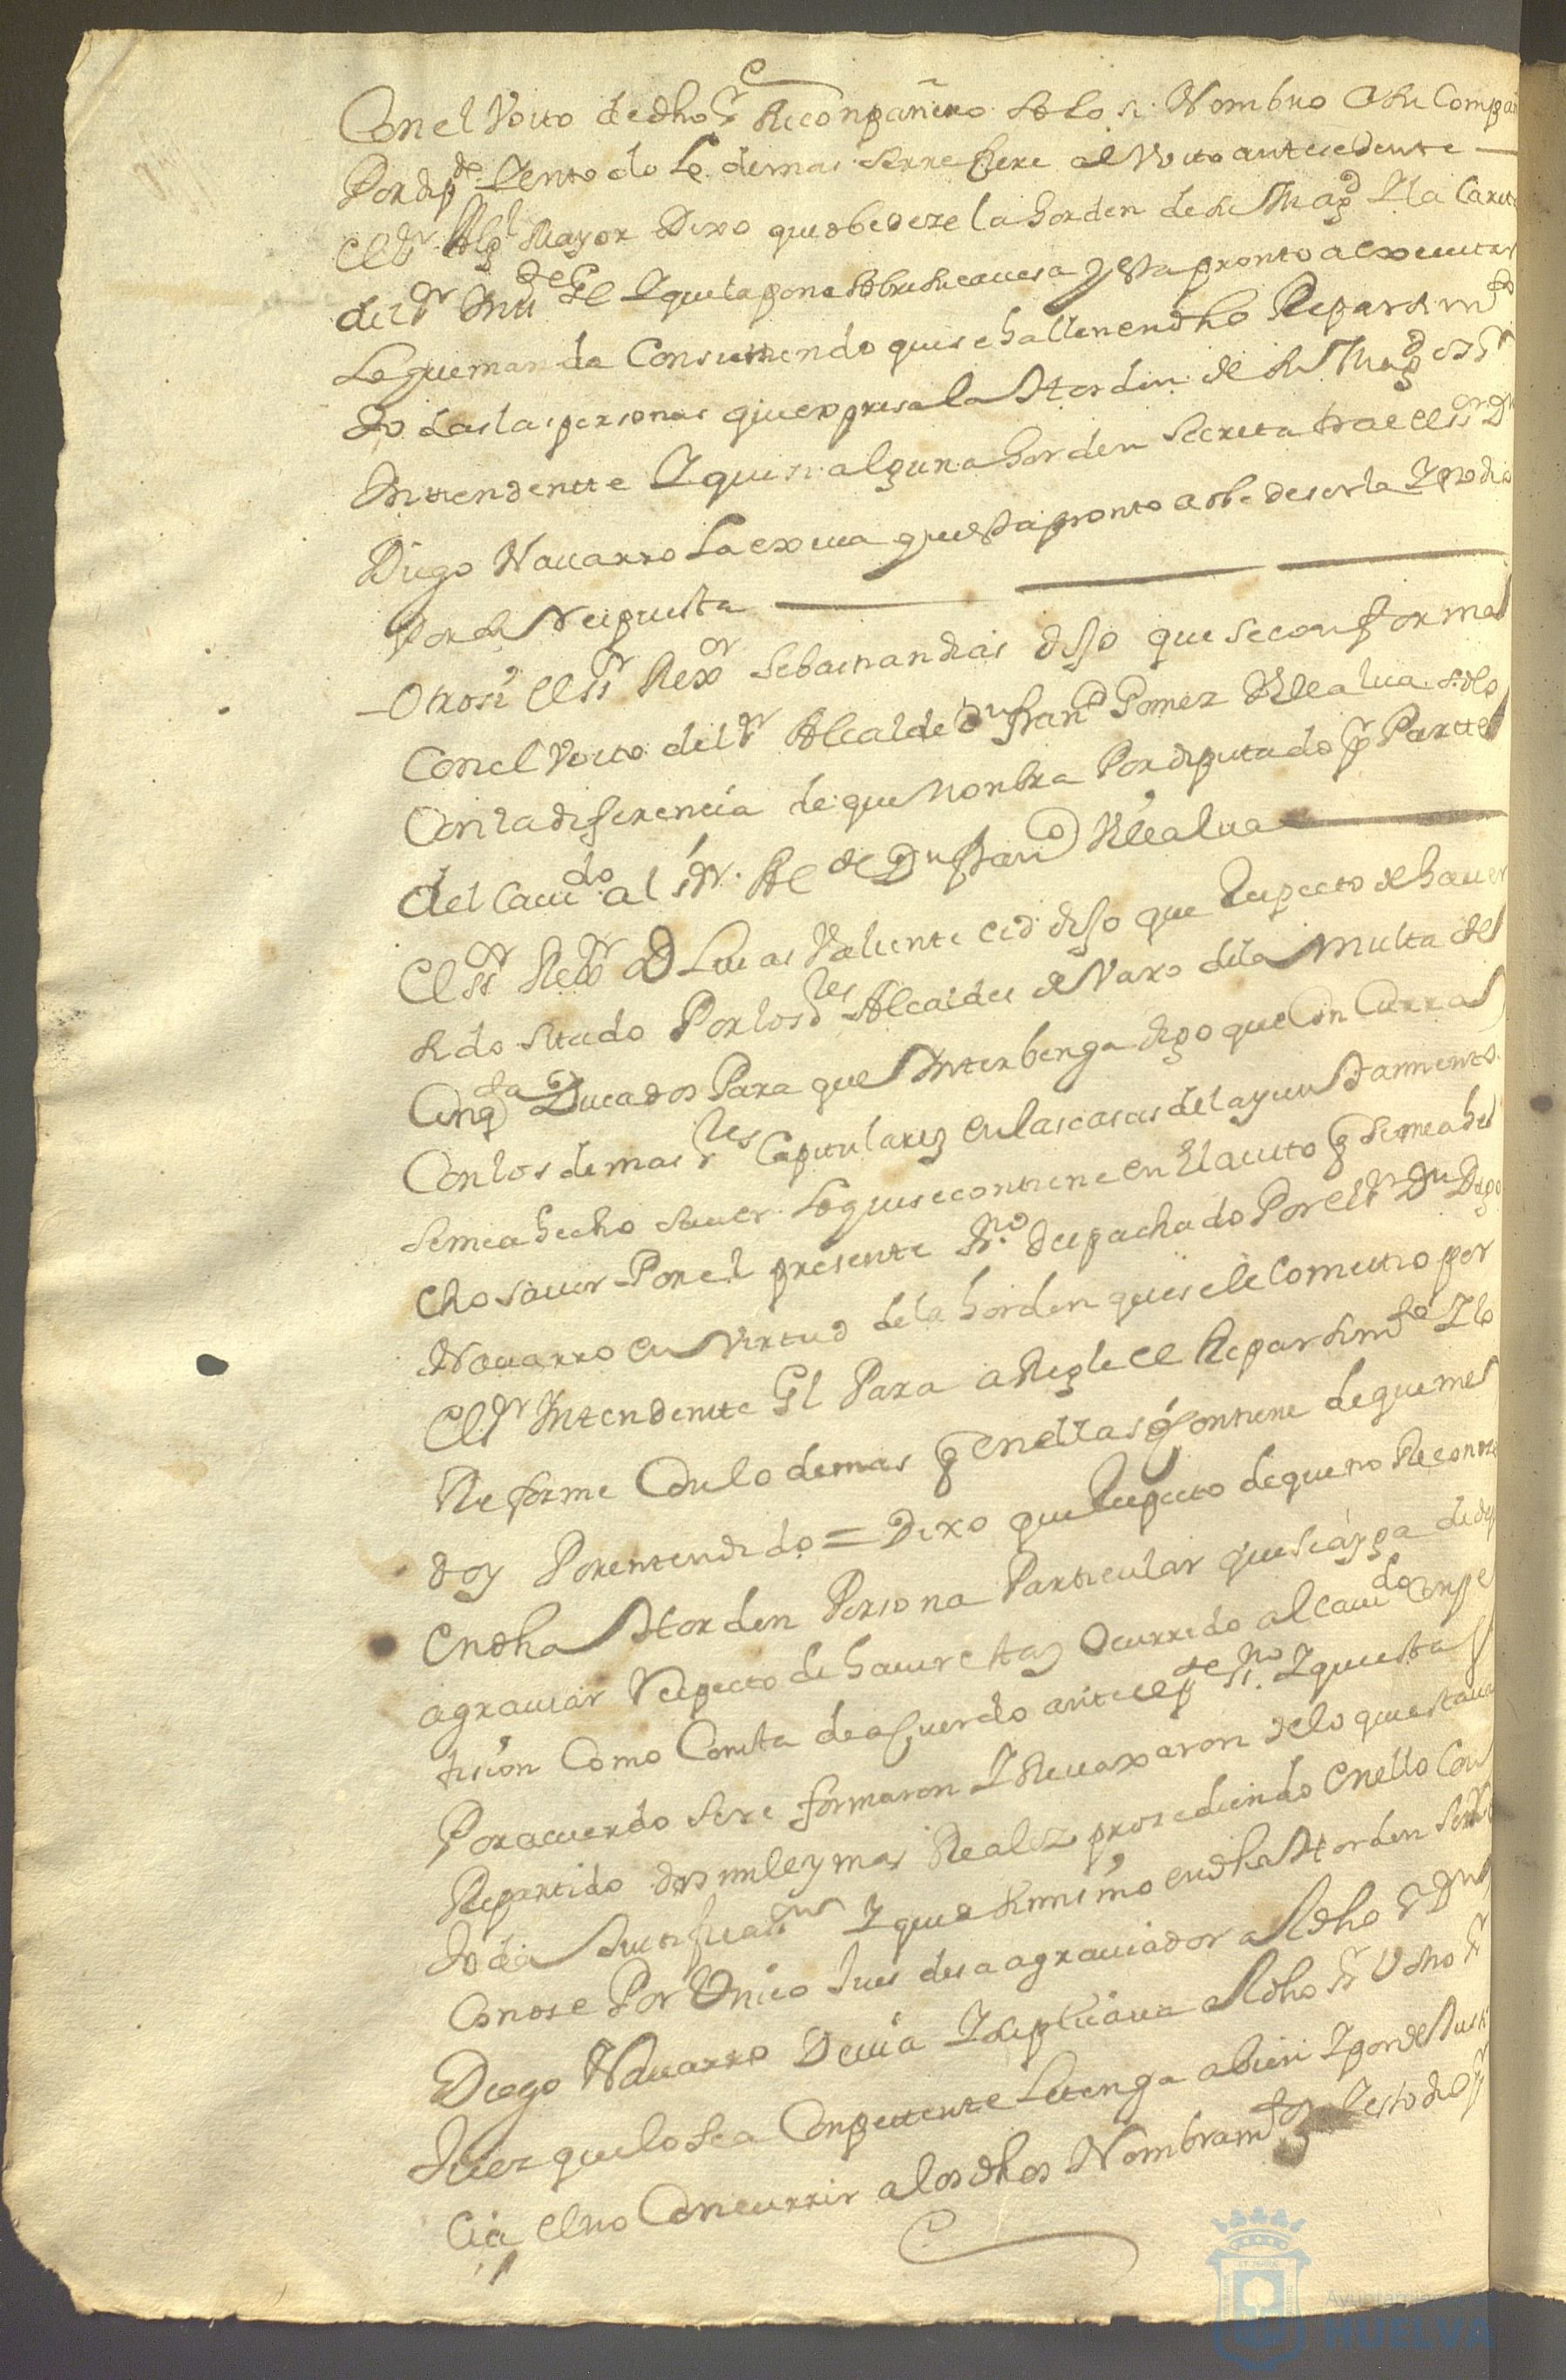 Con el Voto de dho Sr Recompañero solo si Nombro a su Compañ
Por dipdo Y en todo lo demas se rrefiere al Voto antesedente
El Sr Alg Mayor Dixo que obedeze la horden de su Magd Y la Carta
del Sr Intte Gl Y que la pone sobre su cauesa y esta pronto a executar
Lo que manda Consintiendo que se hallen en dho Repartimto
todas las personas que expresa la Horden de su Magd
Inttendentte Y que si alguna horden Secreta trae el Sr Dn
Diego Nauarro La exiua que esta pronto a obedeserla Y
Por su Respuesta
Otrosi el Sr Rexor Sebastian dias dijo que se conforma
Con el Voto del Sr Alcalde Dn Franco Gomez de Alua solo
Con la diferencia de que nonbra Por diputado pr Partte
del Cauido al Sr Alde Dn Franco de Alua
El Sr Rexr D Lucas Valiente Cid dijo que Respecto de hauer
sido sitado Por los Sres Alcaldes de Vaxo de la Multa de
Cinqta Ducados Para que Interbenga digo que Con Curra
Con los demas Sres Capitulares en las casas del ayuntamiento
se me a hecho sauer Lo que se contiene en El auto q se me a he
cho sauer Por el presente Srno despachado Por el Sr Dn Diego
Nauarro en Virtud de la horden que se le Cometio por
El Sr Intendentte Gl Para a Regle el Repartimto Y lo
Reforme Con lo demas q en ellas se Contiene de que me
doy Por entendido = Dixo que Respecto de que no Reconoze
en dha Horden Persona Particular que se aya de
agrauiar Respecto de hauer estas Ocurrido al Cauido Conpe
tision Como Consta de a Cuerdo ante el pte Srno Y que esta
Por acuerdo se re formaron Y Reuaxaron de lo que estaua
Repartido dos mil y mas Reales prosediendo en ello Con
toda Justificasion Y que asimismo en dha Horden se
Conose Por Vnico Jues desaagrauiador al dho Sr Dn
Diego Nauarro Deuia Y suplicaua al dho Sr V otro Sr
Juez que lo sea Conpettente Lo tenga a bien Y por de Justi
cia el no Concurrir a los dhos Nombramtos Y esto dijo